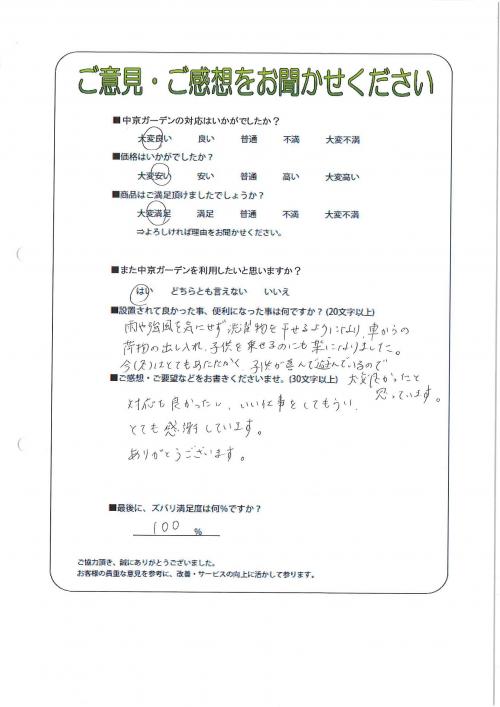 ご意見・ご感想をお聞かせください
■中京ガーデンの対応はいかがでしたか？
大変良い 良い 普通 不満 大変不満
■価格はいかがでしたか？
大変安い 安い 普通 高い 大変高い
■商品はご満足頂けましたでしょうか？
大変満足 満足 普通 不満 大変不満
⇒よろしければ理由をお聞かせください。
■また中京ガーデンを利用したいと思いますか？
はい どちらとも言えない いいえ
■設置されて良かった事、便利になった事は何ですか？(20文字以上)
雨や強風を気にせず洗濯物を干せるようになり、車からの
荷物の出し入れ、子供を乗せるのにも楽になりました。
今(冬)はとてもあたたかく、子供が喜んで遊んでいるので
大変良かったと
思っています。
■ご感想・ご要望などをお書きくださいませ。(30文字以上)
対応も良かったし、いい仕事をしてもらい、
とても感謝しています。
ありがとうございます。
■最後に、ズバリ満足度は何％ですか？
100 ％
ご協力頂き、誠にありがとうございました。
お客様の貴重な意見を参考に、改善・サービスの向上に活かして参ります。